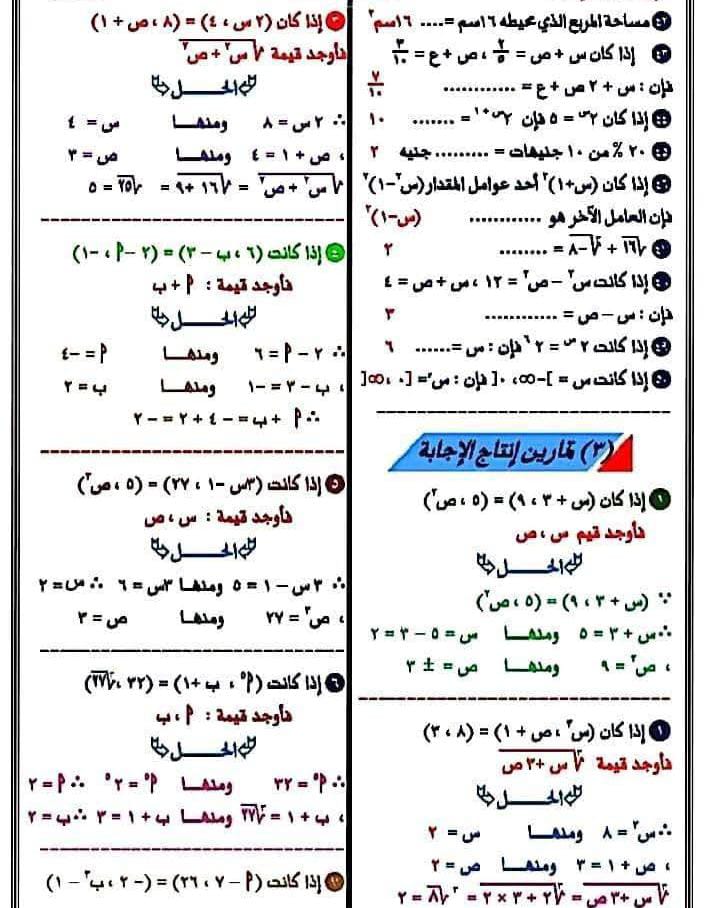 ٤٢ مساحة المربع الذي محيطه ١٦سم =.... ١٦سم٢
٤٣ إذا كان س + ص = ٢/٥ ، ص + ع = ٣/١٠
فإن : س + ٢ ص + ع = ............. ٧/١٠
٤٤ إذا كان ٢^س = ٥ فإن ٢^(س+١) = ....... ١٠
٤٥ ٢٠ % من ١٠ جنيهات = ..........جنيه ٢
إذا كان (س+١)٢ أحد عوامل المقدار(س٢-١)٢
فإن العامل الآخر هو ............. (س-١)٢
٤٧ √١٦ + ∛-٨ = ........ ٢
إذا كانت س٢ - ص٢ = ١٢ ، س + ص = ٤
فإن : س - ص = ............. ٣
إذا كانت ٢^س = ٢^٦ فإن : س =...... ٦
إذا كانت س = ]-∞، ٠[ فإن : سَ = [٠ ، ∞[
(٣) تمارين إنتاج الإجابة
١ إذا كان (س + ٣ ، ٩) = (٥ ، ص٢)
فأوجد قيم س ، ص
الحـــل
∵ (س + ٣ ، ٩) = (٥ ، ص٢)
∴ س + ٣ = ٥ ومنهـــا س = ٥ - ٣ = ٢
، ص٢ = ٩ ومنهـــا ص = ± ٣
إذا كان (س٣ ، ص + ١) = (٨ ، ٣)
فأوجد قيمة √س + ٣ص
الحـــل
∴ س٣ = ٨ ومنهـــا س = ٢
، ص + ١ = ٣ ومنهـــا ص = ٢
√س + ٣ص = √٢ + ٣ × ٢ = √٨ = ٢√٢
٣ إذا كان (٢ س ، ٤) = (٨ ، ص + ١)
فأوجد قيمة √س٢ + ص٢
الحـــل
∴ ٢ س = ٨ ومنهـــا س = ٤
، ص + ١ = ٤ ومنهـــا ص = ٣
√س٢ + ص٢ = √١٦ + ٩ = √٢٥ = ٥
٤ إذا كانت (٦ ، ب - ٣) = (٢ - أ ، -١)
فأوجد قيمة : أ + ب
الحـــل
∴ ٢ - أ = ٦ ومنهـــا أ = -٤
، ب - ٣ = -١ ومنهـــا ب = ٢
∴ أ + ب = - ٤ + ٢ = - ٢
٥ إذا كانت (٣س - ١ ، ٢٧) = (٥ ، ص٣)
فأوجد قيمة : س ، ص
الحـــل
∴ ٣ س - ١ = ٥ ومنهـا ٣س = ٦ ∴ س = ٢
، ص٣ = ٢٧ ومنهـــا ص = ٣
٦ إذا كانت (أ٥ ، ب + ١) = (٣٢ ، ∛٢٧)
فأوجد قيمة : أ ، ب
الحـــل
∴ أ٥ = ٣٢ ومنهـــا أ٥ = ٢٥ ∴ أ = ٢
، ب + ١ = ∛٢٧ ومنهـا ب + ١ = ٣ ∴ ب = ٢
إذا كانت (أ - ٧ ، ٢٦) = (- ٢ ، ب٣ - ١)